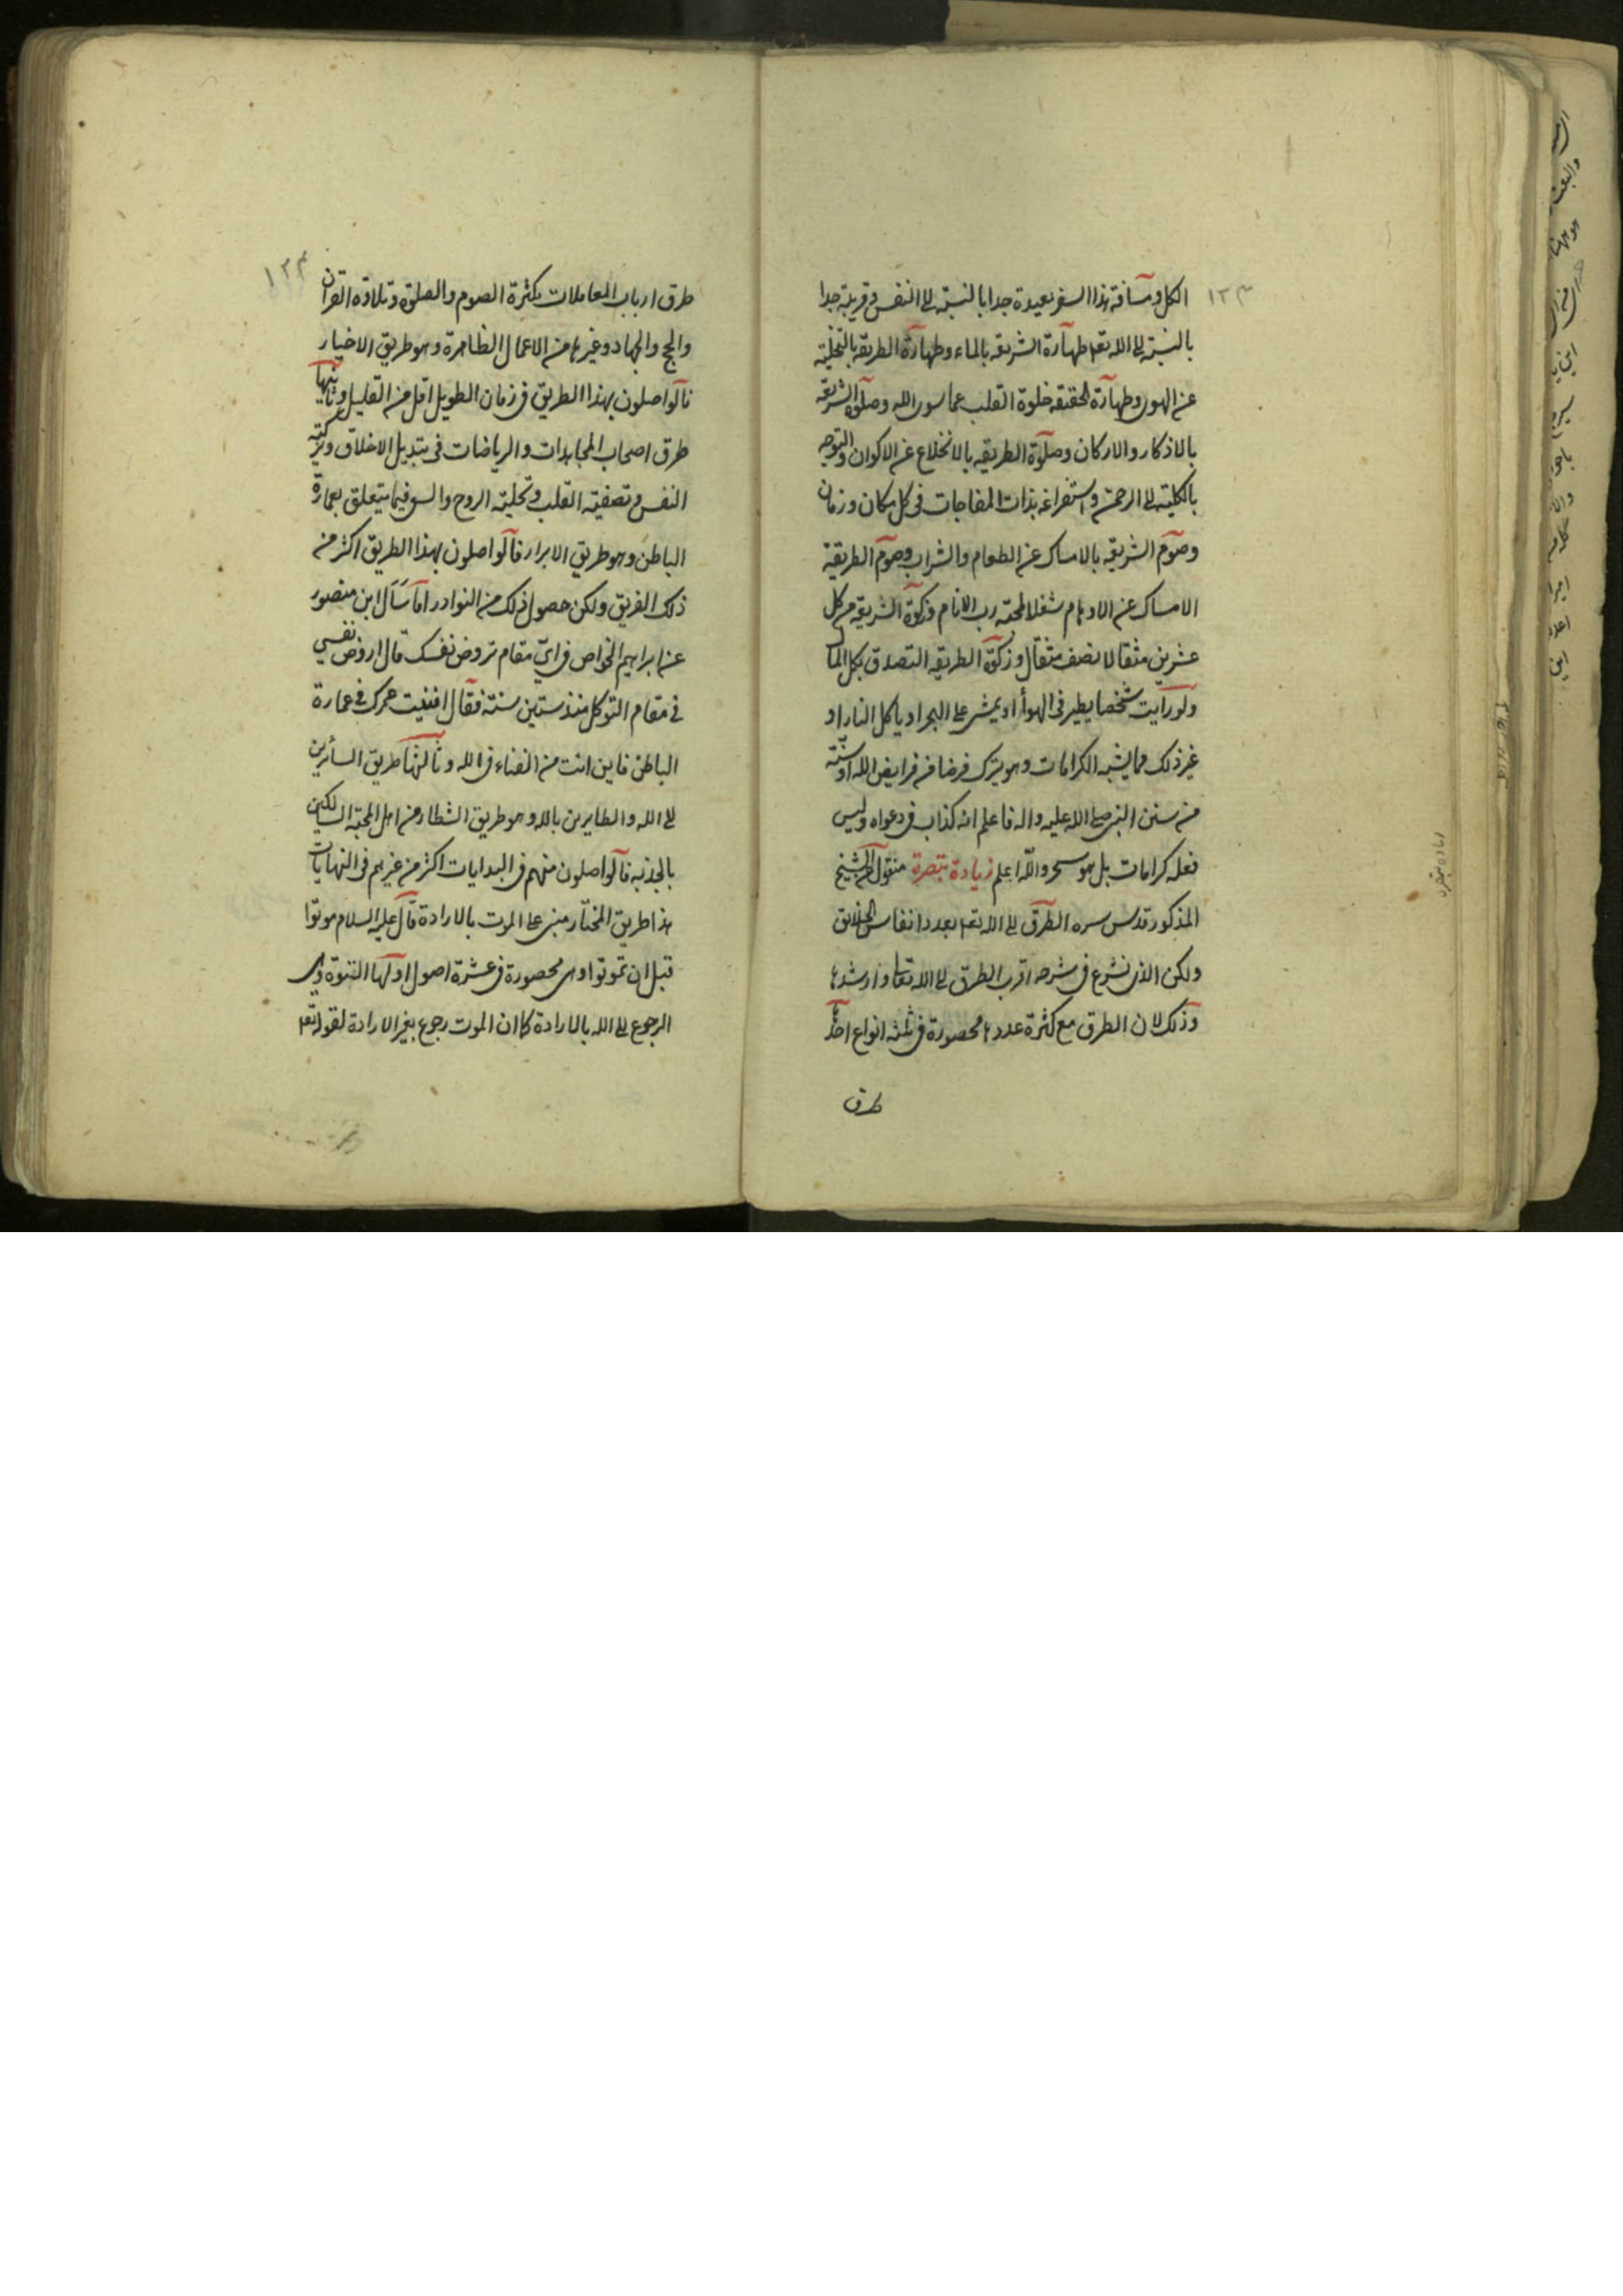 ١٢٣
الكل ومسافة هذا السفر بعيدة جدا بالنسبة الى النفس وقريبة جدا
بالنسبة الى الله تعه طهارة الشريعه بالماء وطهارة الطريقه بالتخلية
عن الهوى وطهارة الحقيقه خلوة القلب عما سوى الله وصلوة الشريعه
بالاذكار والاركان وصلوة الطريقه بالانخلاع عن الاكوان والتوجه
بالكلية الى الرحمن واستفراغه بذات المفاجات فى كل مكان وزمان
وصوم الشريعه بالامساك عن الطعام والشراب وصوم الطريقة
الامساك عن الاوهام شغلا لمحبة رب الانام وزكوة الشريعة من كل
عشرين مثقالا نصف مثقال وزكوة الطريقه التصدق بكل المال
ولو رايت شخصا يطير فى الهوأ او يمشى على البحر او ياكل النار او
غير ذلك مما يشبه الكرامات وهو يترك فرضا من فرايض الله او سنة
من سنن النبى صلى الله عليه واله فاعلم انه كذاب فى دعواه وليس
فعله كرامات بل هو سحر والله اعلم زيادة تبصرة منقول الشيخ
المذكور قدس سره الطرق الى الله تعه بعدد انفاس الخلايق
ولكن الذى نشرع فى شرحه اقرب الطرق الى الله تعا وارشدها
وذلك لان الطرق مع كثرة عددها محصورة فى ثلثه انواع احدها
طرق
١٢٤
طرق ارباب المعاملات بكثرة الصوم والصلوة وتلاوة القرآن
والحج والجهاد وغيرها من الاعمال الظاهرة وهو طريق الاخيار
فالواصلون بهذا الطريق فى زمان الطويل اقل من القليل وثانيها
طرق اصحاب المجاهدات والرياضات فى تبديل الاخلاق وتزكية
النفس وتصفية القلب وتحلية الروح والسعى فيما يتعلق بعمارة
الباطن وهو طريق الابرار فالواصلون بهذا الطريق اكثر من
ذلك الفريق ولكن حصول ذلك من النوادر اما سأل ابن منصور
عن ابراهيم الخواص فى اى مقام تروض نفسك قال اروض نفسي
فى مقام التوكل منذ ستين سنة فقال افنيت عمرك فى عمارة
الباطن فاين انت من الفناء فى الله وثالثها طريق السائرين
الى الله والطايرين بالله وهو طريق الشطار من اهل المحبة السالكين
بالجذبه فالواصلون منهم فى البدايات اكثر من غيرهم فى النهايات
هذا طريق المختار مبنى على الموت بالارادة قال عليه السلام موتوا
قبل ان تموتوا وهى محصورة فى عشرة اصول اولها التوبة وهى
الرجوع الى الله بالارادة كما ان الموت رجوع بغير الارادة لقوله تعه